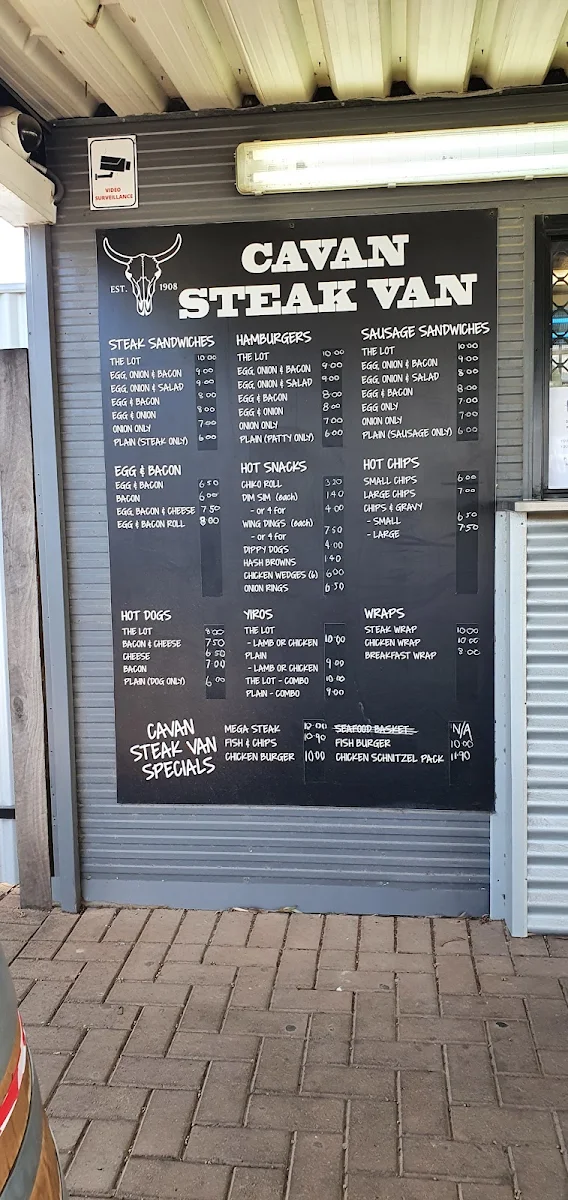 VIDEO
SURVEILLANCE
CAVAN
EST. 1908
STEAK VAN
STEAK SANDWICHES
THE LOT 10 00
EGG, ONION & BACON 9 00
EGG, ONION & SALAD 9 00
EGG & BACON 8 00
EGG & ONION 8 00
ONION ONLY 7 00
PLAIN (STEAK ONLY) 6 00
HAMBURGERS
THE LOT 10 00
EGG, ONION & BACON 9 00
EGG, ONION & SALAD 9 00
EGG & BACON 8 00
EGG & ONION 8 00
ONION ONLY 7 00
PLAIN (PATTY ONLY) 6 00
SAUSAGE SANDWICHES
THE LOT 10 00
EGG, ONION & BACON 9 00
EGG, ONION & SALAD 8 00
EGG & BACON 8 00
EGG ONLY 7 00
ONION ONLY 7 00
PLAIN (SAUSAGE ONLY) 6 00
EGG & BACON
EGG & BACON 6 50
BACON 6 00
EGG, BACON & CHEESE 7 50
EGG & BACON ROLL 8 00
HOT SNACKS
CHIKO ROLL 3 20
DIM SIM (each) 1 40
- or 4 for 4 00
WING DINGS (each)
- or 4 for 7 50
DIPPY DOGS 4 00
HASH BROWNS 1 40
CHICKEN WEDGES (6) 6 00
ONION RINGS 6 50
HOT CHIPS
SMALL CHIPS 6 00
LARGE CHIPS 7 00
CHIPS & GRAVY
- SMALL 6 50
- LARGE 7 50
HOT DOGS
THE LOT 8 00
BACON & CHEESE 7 50
CHEESE 6 50
BACON 7 00
PLAIN (DOG ONLY) 6 00
YIROS
THE LOT
- LAMB OR CHICKEN 10 00
PLAIN
- LAMB OR CHICKEN 9 00
THE LOT - COMBO 10 00
PLAIN - COMBO 9 00
WRAPS
STEAK WRAP 10 00
CHICKEN WRAP 10 00
BREAKFAST WRAP 8 00
CAVAN
STEAK VAN
SPECIALS
MEGA STEAK 12 00
FISH & CHIPS 10 90
CHICKEN BURGER 10 00
SEAFOOD BASKET N/A
FISH BURGER 10 00
CHICKEN SCHNITZEL PACK 11 90